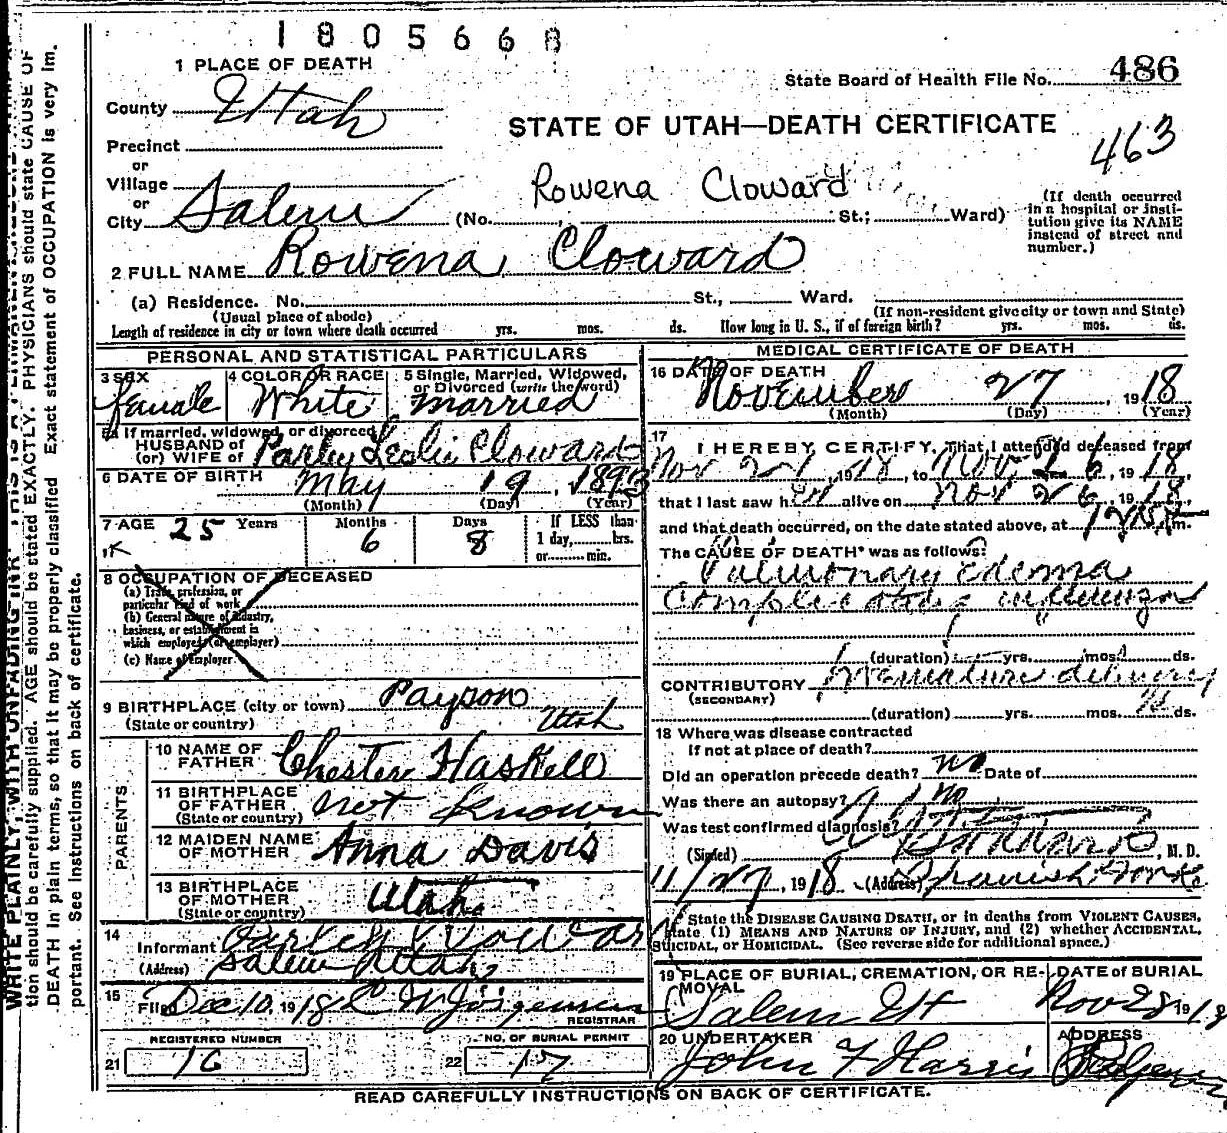 1805668
1 PLACE OF DEATH
State Board of Health File No. 486
County Utah
STATE OF UTAH—DEATH CERTIFICATE
463
Precinct
or
Village
Rowena Cloward
or
City Salem (No. St.; Ward)
(If death occurred in a hospital or insti-
tution give its NAME
instead of street and
number.)
2 FULL NAME Rowena Cloward
(a) Residence. No. St., Ward.
(Usual place of abode) (If non-resident give city or town and State)
Length of residence in city or town where death occurred yrs. mos. ds. How long in U. S., if of foreign birth? yrs. mos. ds.
PERSONAL AND STATISTICAL PARTICULARS
3 SEX 4 COLOR OR RACE 5 Single, Married, Widowed,
or Divorced (write the word)
female White married
5a If married, widowed, or divorced
HUSBAND of
(or) WIFE of Parley Leslie Cloward
6 DATE OF BIRTH May 19, 1893
(Month) (Day) (Year)
7 AGE 25 Years Months 6 Days 8 If LESS than
1 day, hrs.
or min.
8 OCCUPATION OF DECEASED
(a) Trade, profession, or
particular kind of work
(b) General nature of industry,
business, or establishment in
which employed (or employer)
(c) Name of employer
9 BIRTHPLACE (city or town) Payson
(State or country) Utah
PARENTS
10 NAME OF
FATHER Chester Haskell
11 BIRTHPLACE
OF FATHER not known
(State or country)
12 MAIDEN NAME
OF MOTHER Anna Davis
13 BIRTHPLACE
OF MOTHER Utah
(State or country)
14
Informant
(Address) Salem Utah
15
Filed Dec 10, 1918 Jorgensen
REGISTRAR
REGISTERED NUMBER NO. OF BURIAL PERMIT
21 16 22 17
MEDICAL CERTIFICATE OF DEATH
16 DATE OF DEATH
November 27, 1918
(Month) (Day) (Year)
17 I HEREBY CERTIFY, That I attended deceased from
Nov 1918, to Nov 26, 1918,
that I last saw her alive on Nov 26, 1918,
and that death occurred, on the date stated above, at m.
The CAUSE OF DEATH* was as follows:
Pulmonary edema
Complicating influenza
(duration) yrs. mos. ds.
CONTRIBUTORY Premature delivery
(SECONDARY)
(duration) yrs. mos. ds.
18 Where was disease contracted
if not at place of death?
Did an operation precede death? no Date of
Was there an autopsy? no
Was test confirmed diagnosis?
(Signed) , M. D.
11/27, 1918 (Address) Spanish Fork
*State the DISEASE CAUSING DEATH, or in deaths from VIOLENT CAUSES,
state (1) MEANS AND NATURE OF INJURY, and (2) whether ACCIDENTAL,
SUICIDAL, or HOMICIDAL. (See reverse side for additional space.)
19 PLACE OF BURIAL, CREMATION, OR RE- DATE of BURIAL
MOVAL
Salem Ut Nov 28 1918
20 UNDERTAKER ADDRESS
John F Harris
READ CAREFULLY INSTRUCTIONS ON BACK OF CERTIFICATE.
WRITE PLAINLY, WITH UNFADING INK
tion should be carefully supplied. AGE should be stated EXACTLY. PHYSICIANS should state CAUSE OF
DEATH in plain terms, so that it may be properly classified Exact statement of OCCUPATION is very im.
portant. See Instructions on back of certificate.